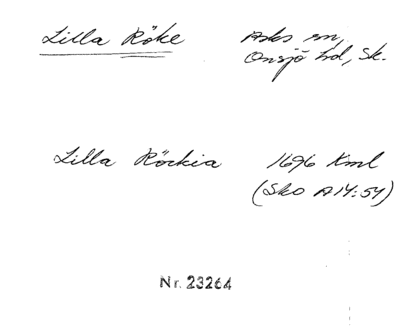 Lilla Röke Asks sn,
Onsjö hd, Sk.
Lilla Röckia 1696 Kml
(Sko A14:54)
Nr. 23264